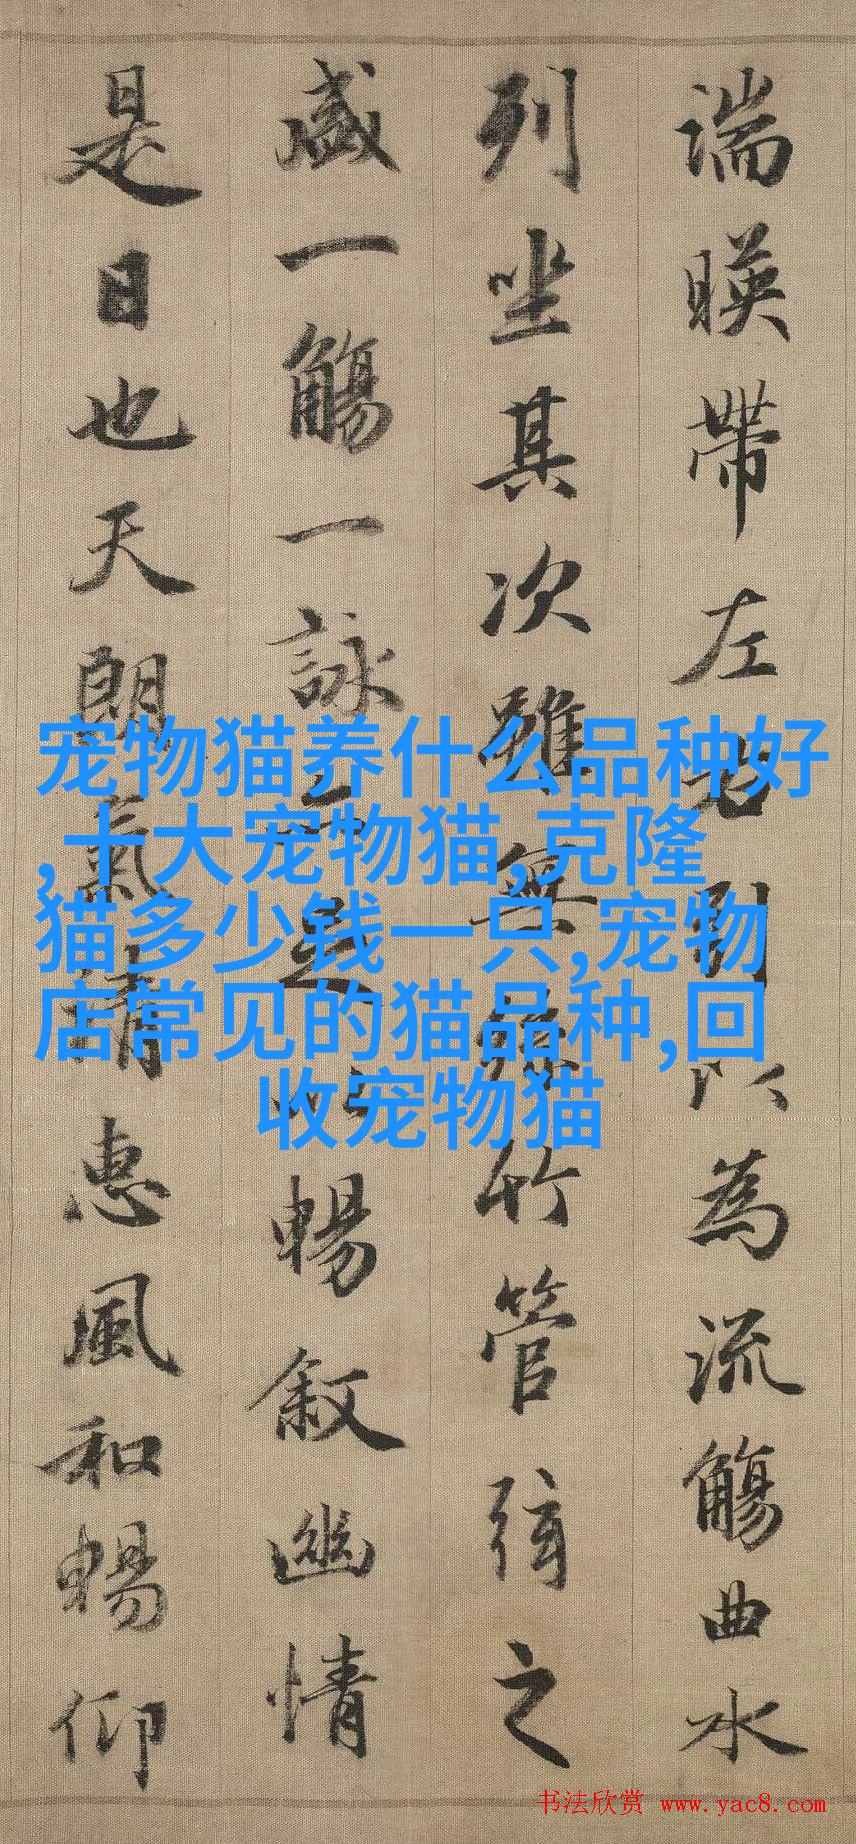 湍暎帶左右引以為流觴曲水
列坐其次雖無絲竹管弦之
盛一觴一詠亦足以暢敘幽情
是日也天朗氣清惠風和暢仰
宠物猫养什么品种好
,十大宠物猫,克隆
猫多少钱一只,宠物
店常见的猫品种,回
收宠物猫
书法欣赏 www.yac8.com